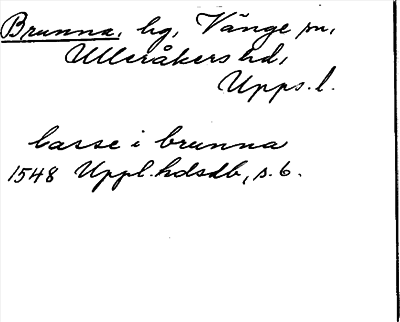 Brunna, hg, Vänge sn,
Ulleråkers hd,
Upps. l.
lasse i brunna
1548 Uppl. hdsdb, s. 6.